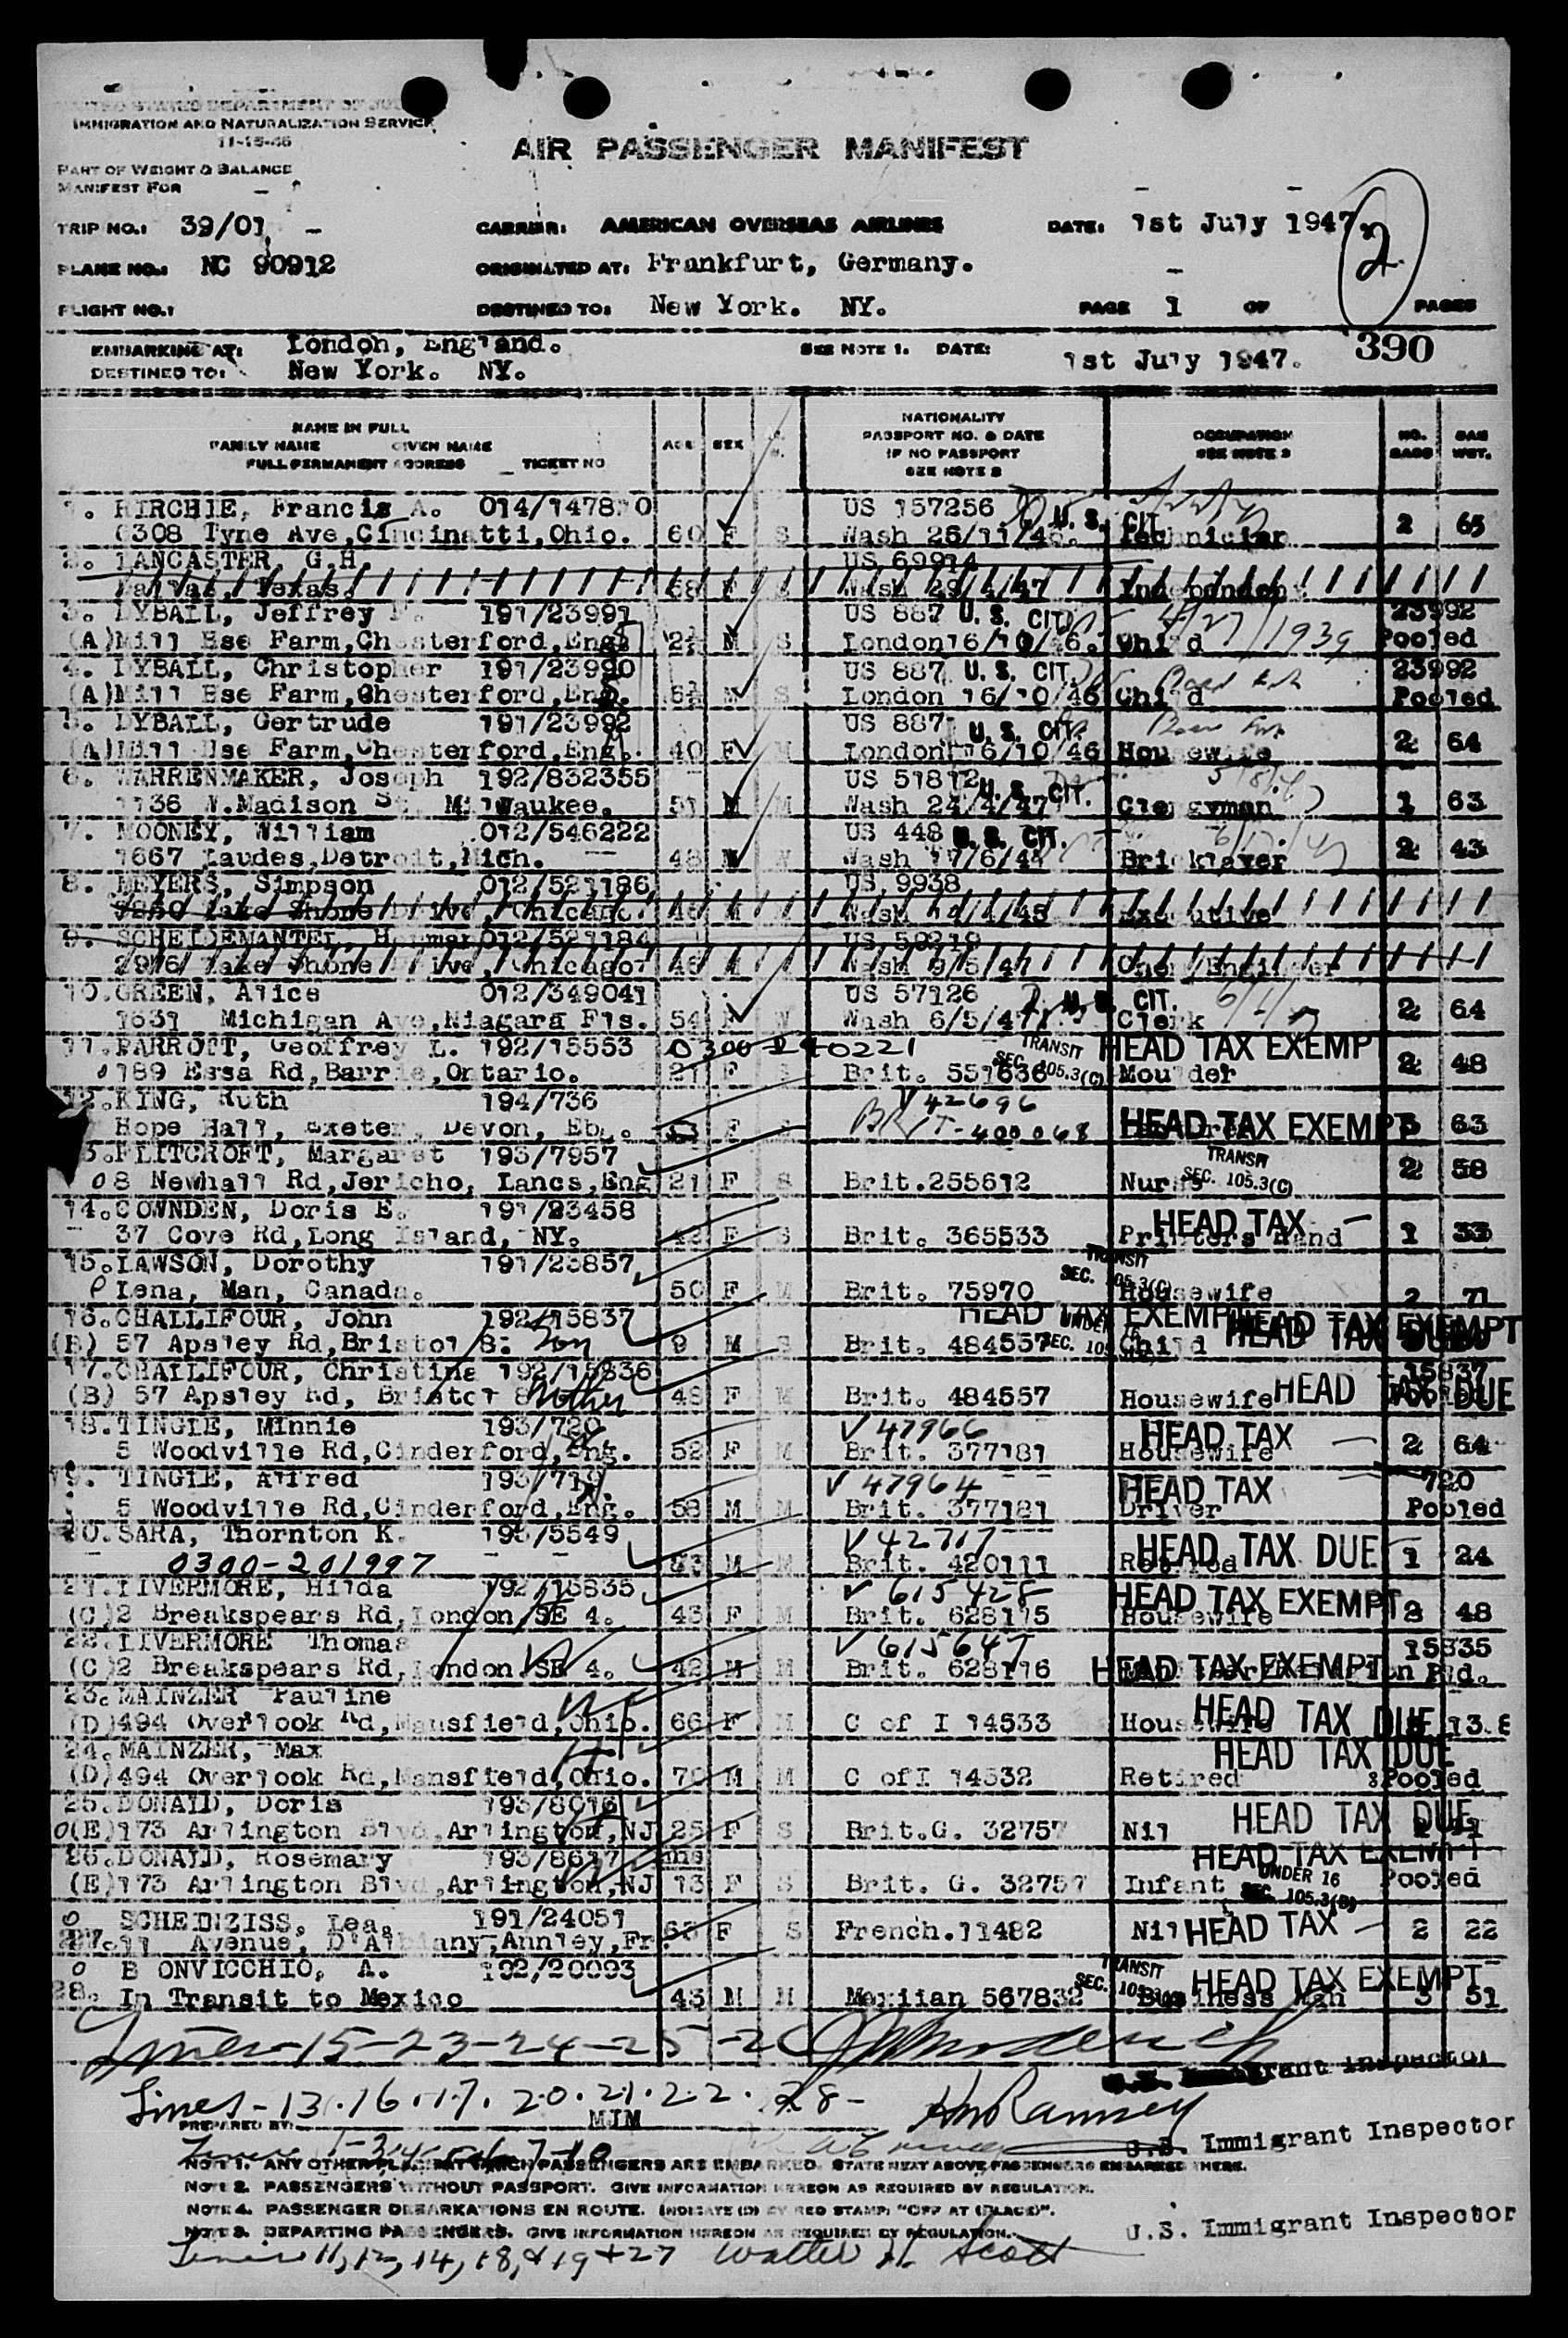 UNITED STATES DEPARTMENT OF
IMMIGRATION AND NATURALIZATION SERVICE
11-15-46
AIR PASSENGER MANIFEST
PART OF WEIGHT & BALANCE
MANIFEST FOR
TRIP NO.: 39/01 CARRIER: AMERICAN OVERSEAS AIRLINES DATE: 1st July 1947
2
PLANE NO.: NC 90912 ORIGINATED AT: Frankfurt, Germany.
FLIGHT NO.: DESTINED TO: New York. NY. PAGE 1 OF PAGES
EMBARKING AT: London, England. SEE NOTE 1. DATE: 1st July 1947. 390
DESTINED TO: New York. NY.
NAME IN FULL
FAMILY NAME GIVEN NAME
FULL PERMANENT ADDRESS TICKET NO
AGE SEX
NATIONALITY
PASSPORT NO. & DATE
IF NO PASSPORT
SEE NOTE 2
OCCUPATION
SEE NOTE 3
NO. BAGS
BAG WGT.
1. Francis A. 014/147810 US 157256 U. S. CIT.
6308 Tyne Ave,Cincinatti,Ohio. 60 F S Wash 26/11/46. Technician 2 65
2. LANCASTER, G.H. US 69914
Dallas, Texas. 58 Wash 29/4/47 Independent
3. LYBALL, Jeffrey 191/23991 US 887 U. S. CIT. 4/27/1939 23992
(A)Mill Hse Farm,Chesterford,Eng. M S London16/10/46. Child Pooled
4. LYBALL, Christopher 191/23990 US 887 U. S. CIT. 23992
(A)Mill Hse Farm,Chesterford,Eng. M S London 16/10/46 Child Pooled
5. LYBALL, Gertrude 191/23992 US 887 U. S. CIT.
(A)Mill Hse Farm,Chesterford,Eng. 40 F M London 16/10/46 Housewife 2 64
6. WARRENMAKER, Joseph 192/832355 US 51812 U. S. CIT.
1136 W.Madison St. Milwaukee. 51 M M Wash 24/4/47 Clergyman 1 63
7. MOONEY, William 012/546222 US 448 U. S. CIT.
1667 Laudes,Detroit,Mich. 48 M W Wash 17/6/47 Bricklayer 2 43
8. MEYERS, Simpson 012/521186 US 9938
Lake Shore Drive, Chicago. Wash Executive
9. SCHEIDEMANTEL, Herman 012/521184 US 59219
2976 Lake Shore Drive, Chicago. Wash 9/5/47 Chem/Engineer
10.GREEN, Alice 012/349041 US 57126 U. S. CIT.
1631 Michigan Ave,Niagara Fls. 54 F W Wash 6/5/47 Clerk 2 64
11.PARROTT, Geoffrey L. 192/15553 0300-240221 TRANSIT SEC. 105.3(C) HEAD TAX EXEMPT
189 Essa Rd,Barrie,Ontario. 21 F S Brit. 551636 Moulder 2 48
12.KING, Ruth 194/736 V 42696
Hope Hall, Exeter, Devon, F BRIT-400068 HEAD TAX EXEMPT 3 63
13.FLITCROFT, Margaret 193/7957 TRANSIT SEC. 105.3(C)
8 Newhall Rd,Jericho, Lancs,Eng 21 F S Brit.255612 Nurse 2 58
14.COWNDEN, Doris E. 191/23458 HEAD TAX
37 Cove Rd,Long Island, NY. 42 F S Brit. 365533 Printers Hand 1 33
15.LAWSON, Dorothy 191/23857 TRANSIT SEC. 105.3(C)
Lena, Man, Canada. 50 F M Brit. 75970 Housewife 2 71
16.CHALLIFOUR, John 192/15837 HEAD TAX EXEMPT UNDER 16 SEC. 105 HEAD TAX EXEMPT
(B) 57 Apsley Rd,Bristol 8. Son 9 M S Brit. 484557 Child HEAD TAX DUE
17.CHALLIFOUR, Christina 192/15836 15837
(B) 57 Apsley Rd, Bristol 8 Mother 48 F M Brit. 484557 Housewife HEAD TAX DUE
18.TINGLE, Minnie 193/720 V 47966 HEAD TAX
5 Woodville Rd,Cinderford,Eng. 52 F M Brit. 377181 Housewife 2 64
19. TINGLE, Alfred 193/719 V 47964 HEAD TAX 720
5 Woodville Rd,Cinderford,Eng. 58 M M Brit. 377181 Driver Pooled
20.SARA, Thornton K. 193/5549 V 42717 HEAD TAX DUE
0300-201997 M M Brit. 420111 Retired 1 24
21.LIVERMORE, Hilda 192/15835 V 615428 HEAD TAX EXEMPT
(C)2 Breakspears Rd,London SE 4. 43 F M Brit. 628115 Housewife 48
22.LIVERMORE Thomas V 615647 15835
(C)2 Breakspears Rd,London SE 4. 42 M M Brit. 628116 HEAD TAX EXEMPT Pld.
23.MAINZER Pauline
(D)494 Overlook Rd,Mansfield,Ohio. 66 F M C of I 14533 Housewife HEAD TAX DUE
24.MAINZER, Max HEAD TAX DUE
(D)494 Overlook Rd,Mansfield,Ohio. 70 M M C ofI 14532 Retired Pooled
25.DONALD, Doris 193/8016
(E)173 Arlington Blvd,Arlington,NJ 25 F S Brit.G. 32757 Nil HEAD TAX DUE
26.DONALD, Rosemary 193/8617 ms HEAD TAX EXEMPT
(E)173 Arlington Blvd,Arlington,NJ 13 F S Brit. G. 32757 Infant UNDER 16 SEC. 105.3(B) Pooled
SCHEINZISS, Lea. 191/24051
27. 11 Avenue, D'Albanny,Annley,Fr. 63 F S French.11482 Nil HEAD TAX 2 22
BONVICCHIO, A. 192/20093 TRANSIT SEC. 105.3(C) HEAD TAX EXEMPT
28. In Transit to Mexico 43 M M Mexiian 567832 Business Man 3 51
Lines-15-23-24-25-26
U.S. Immigrant Inspector
Lines-13.16.17. 20.21.22. 28- HmRamsey
PREPARED BY: MJM
U.S. Immigrant Inspector
NOTE 1. ANY OTHER PLACE AT WHICH PASSENGERS ARE EMBARKED. STATE NEXT ABOVE PASSENGERS EMBARKED THERE.
NOTE 2. PASSENGERS WITHOUT PASSPORT. GIVE INFORMATION HEREON AS REQUIRED BY REGULATION.
NOTE 4. PASSENGER DEBARKATIONS EN ROUTE. INDICATE (D) BY RED STAMP: "OFF AT (PLACE)".
NOTE 3. DEPARTING PASSENGERS. GIVE INFORMATION HEREON AS REQUIRED BY REGULATION.
U.S. Immigrant Inspector
Lines 11,12,14,18,&19+27 Walter H. Scott